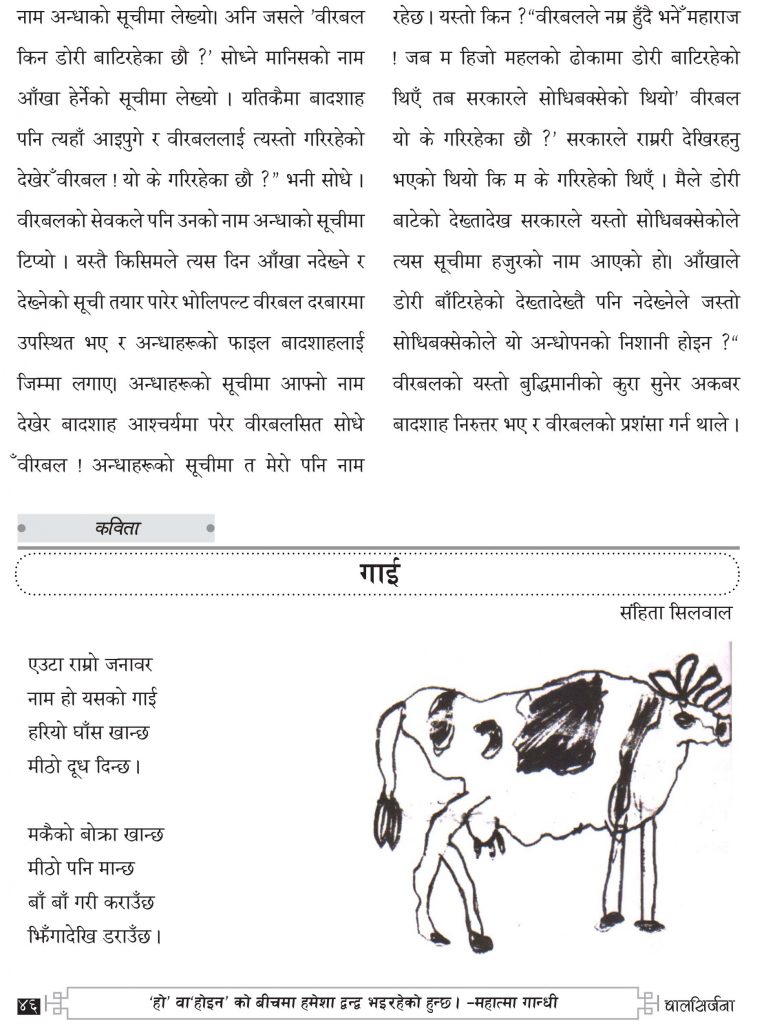 नाम अन्धाको सूचीमा लेख्यो। अनि जसले 'वीरबल
किन डोरी बाटिरहेका छौ ?' सोध्ने मानिसको नाम
आँखा हेर्नेको सूचीमा लेख्यो । यतिकैमा बादशाह
पनि त्यहाँ आइपुगे र वीरबललाई त्यस्तो गरिरहेको
देखेर ँवीरबल ! यो के गरिरहेका छौ ?" भनी सोधे ।
वीरबलको सेवकले पनि उनको नाम अन्धाको सूचीमा
टिप्यो । यस्तै किसिमले त्यस दिन आँखा नदेख्ने र
देख्नेको सूची तयार पारेर भोलिपल्ट वीरबल दरबारमा
उपस्थित भए र अन्धाहरूको फाइल बादशाहलाई
जिम्मा लगाए। अन्धाहरूको सूचीमा आफ्नो नाम
देखेर बादशाह आश्चर्यमा परेर वीरबलसित सोधे
ँवीरबल ! अन्धाहरूको सूचीमा त मेरो पनि नाम
रहेछ । यस्तो किन ?"वीरबलले नम्र हुँदै भनेँ महाराज
! जब म हिजो महलको ढोकामा डोरी बाटिरहेको
थिएँ तब सरकारले सोधिबक्सेको थियो' वीरबल
यो के गरिरहेका छौ ?' सरकारले राम्ररी देखिरहनु
भएको थियो कि म के गरिरहेको थिएँ । मैले डोरी
बाटेको देख्तादेख सरकारले यस्तो सोधिबक्सेकोले
त्यस सूचीमा हजुरको नाम आएको हो। आँखाले
डोरी बाँटिरहेको देख्तादेख्तै पनि नदेख्नेले जस्तो
सोधिबक्सेकोले यो अन्धोपनको निशानी होइन ?"
वीरबलको यस्तो बुद्धिमानीको कुरा सुनेर अकबर
बादशाह निरुत्तर भए र वीरबलको प्रशंसा गर्न थाले ।
कविता
गाई
संहिता सिलवाल
एउटा राम्रो जनावर
नाम हो यसको गाई
हरियो घाँस खान्छ
मीठो दूध दिन्छ ।
मकैको बोक्रा खान्छ
मीठो पनि मान्छ
बाँ बाँ गरी कराउँछ
झिँगादेखि डराउँछ ।
४६
'हो' वा 'होइन' को बीचमा हमेशा द्वन्द्व भइरहेको हुन्छ । -महात्मा गान्धी
बालसिर्जना